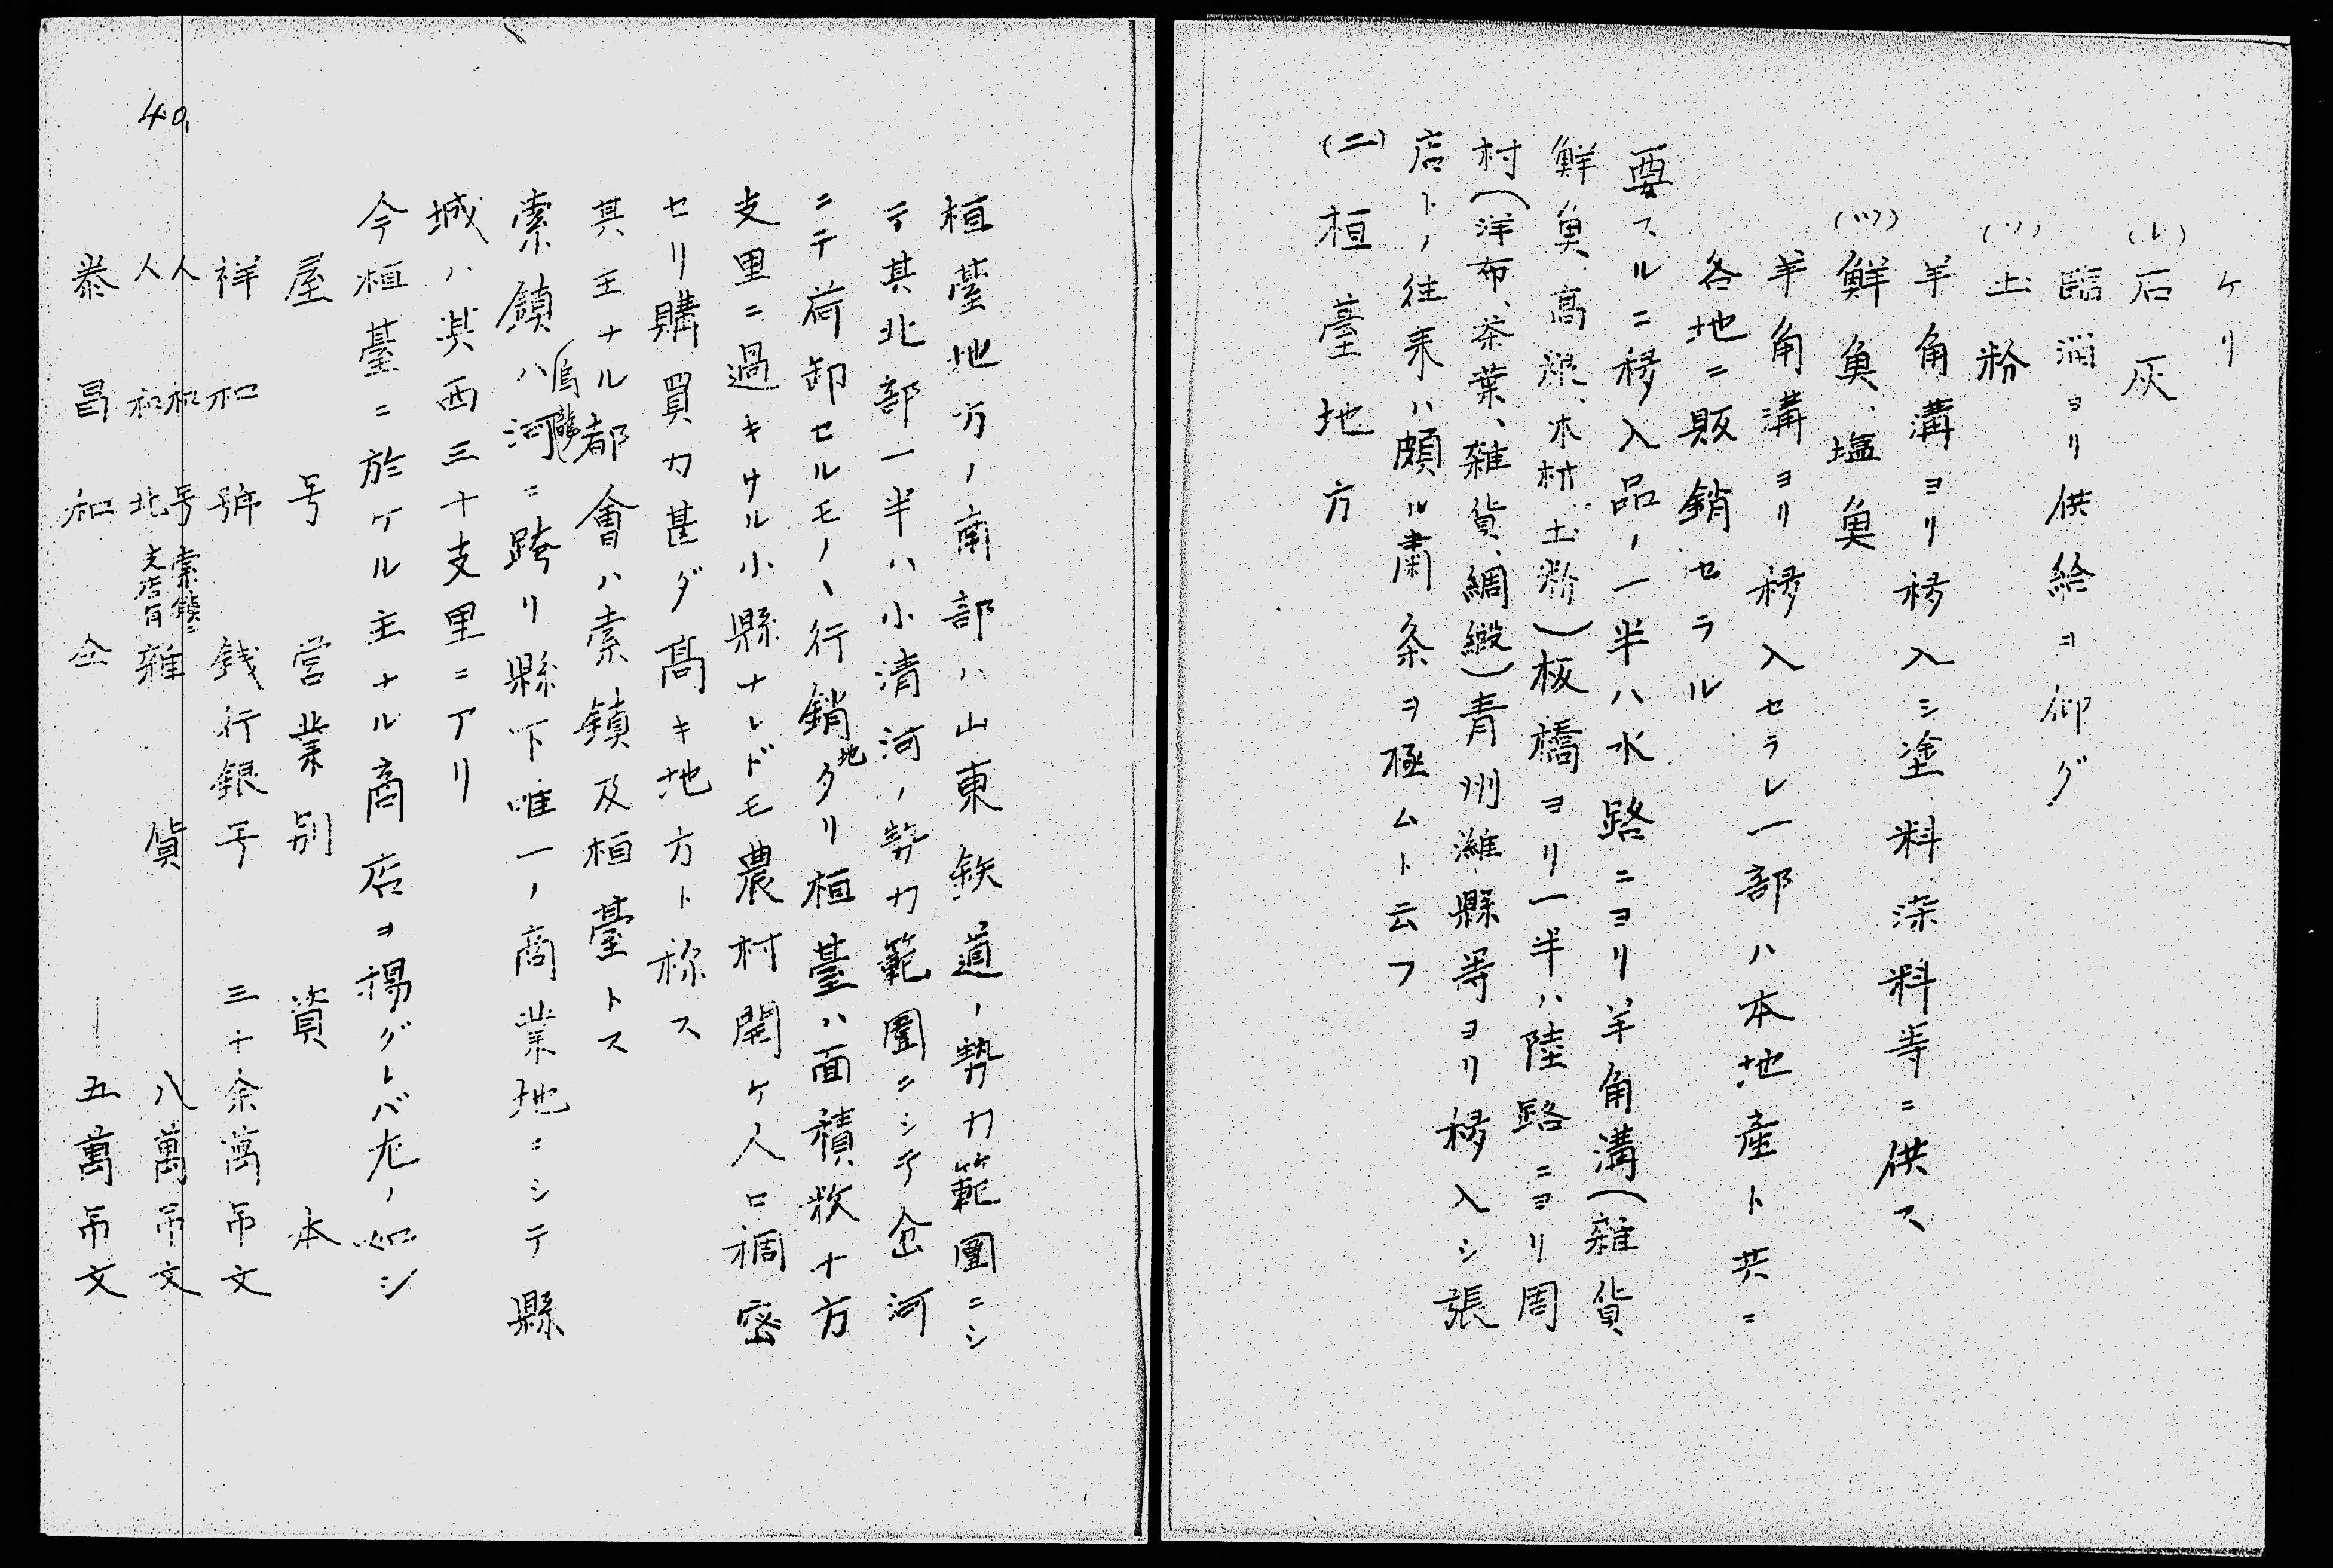 ケリ
(レ)石灰
臨淄ヨリ供給ヲ仰グ
(ソ)土粉
羊角溝ヨリ移入シ塗料染料等ニ供ス
(ツ)鮮魚、塩魚
羊角溝ヨリ移入セラレ一部ハ本地産ト共ニ
各地ニ販銷セラル
要スルニ移入品ノ一半ハ水路ニヨリ羊角溝(雑貨
鮮魚、高粱、木材、土粉)板橋ヨリ一半ハ陸路ニヨリ周
村(洋布、茶葉、雑貨、綢緞)青州濰縣等ヨリ移入シ張
店トノ往来ハ頗ル粛条ヲ極ムト云フ
(二)桓臺地方
桓臺地方ノ南部ハ山東鉄道ノ勢力範圍ニシ
テ其北部一半ハ小清河ノ勢力範圍ニシテ岔河
ニテ荷卸セルモノヽ行銷地タリ桓臺ハ面積数十方
支里ニ過キサル小縣ナレドモ農村開ケ人口稠密
セリ購買力甚ダ高キ地方ト称ス
其主ナル都會ハ索鎮及桓臺トス
索鎮ハ(烏龍)河ニ跨リ縣下唯一ノ商業地ニシテ縣
城ハ其西三十支里ニアリ
今桓臺ニ於ケル主ナル商店ヲ揚グレバ尤ノ如シ
屋号 営業別 資本
祥和號 銭行銀号 三十余萬吊文
人和号 索鎮ニ
人和北 支店有 雑貨 八萬吊文
泰昌和 仝 五萬吊文
40